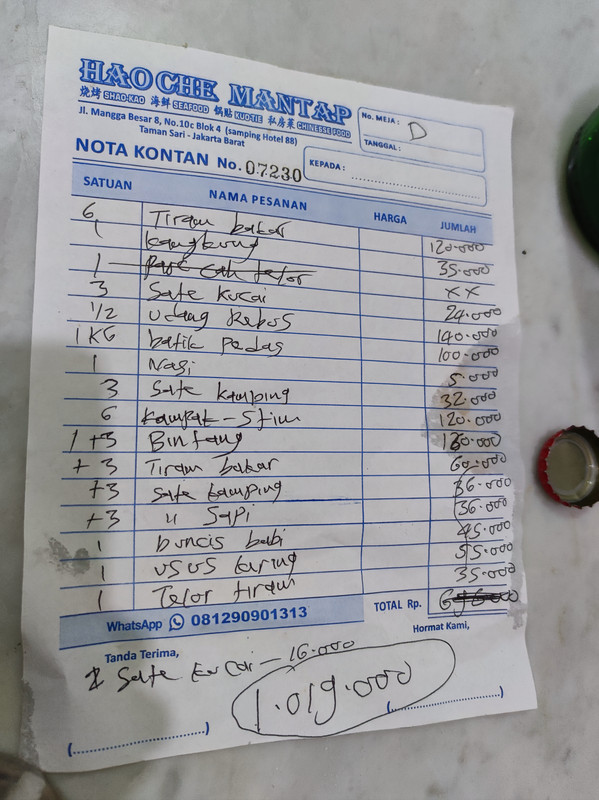 HAO CHE MANTAP
烧烤 SHAO-KAO 海鮮 SEAFOOD 锅貼 KUOTIE 私房菜 CHINESSE FOOD
Jl. Mangga Besar 8, No.10c Blok 4 (samping Hotel 88)
Taman Sari - Jakarta Barat
No. MEJA : D
TANGGAL :
NOTA KONTAN No. 07230
KEPADA :
SATUAN NAMA PESANAN HARGA JUMLAH
6 Tiram bakar 120.000
1 kangkung 35.000
1 telor xx
3 Sate kucai 24.000
1/2 udang Rebus 140.000
1 KG batik pedas 100.000
1 Nasi 5.000
3 Sate kamping 32.000
6 kampak - Stim 120.000
1 +3 Bintang 130.000
+ 3 Tiram bakar 60.000
+3 Sate kamping 36.000
+3 " Sapi 36.000
1 buncis babi 45.000
1 usus kering 55.000
1 Telor tiram 35.000
WhatsApp 081290901313 TOTAL Rp.
Hormat Kami,
Tanda Terima,
2 Sate kucai - 16.000
1.019.000